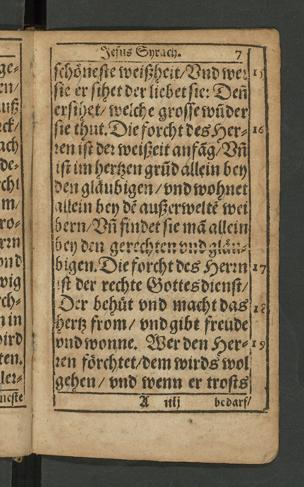 Jesus Syrach. 7
schöneste weißheit/ Vnd wer 15
sie er sihet der liebet sie: Deñ
ersihet/ welche grosse wũder
sie thut. Die forcht des Her- 16
ren ist der weißeit anfãg/ Vñ
ist im hertzen grũd allein bey
den gläubigen/ vnd wohnet
allein bey dẽ außerweltẽ wei
bern/ Vñ findet sie mã allein
bey den gerechten vnd gläu-
bigen. Die forcht des Herrn 17
ist der rechte Gottesdienst/
Der behüt vnd macht das 18
hertz from/ vnd gibt freude
vnd wonne. Wer den Her- 19
ren förchtet/ dem wirds wol
gehen/ vnd wenn er trosts
A iiij bedarf/
ge-
en/
auß
eck/
ach
de-
echt
m/
ro-
rrn
ond
wig
ch-
n in
wird
ten.
ller-
neste